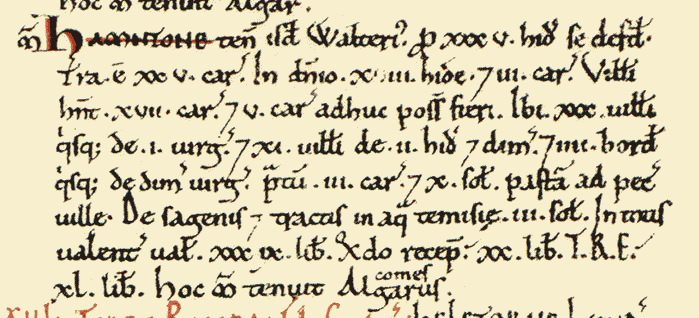 hoc m̃ tenuit Algar.
m̃ hAMNTONE teñ isđ Walteri9. ꝑ xxx v. hiđ se defđ.
Tra. ē xx v. car̃. In dñio. hidæ. ⁊ iii. car̃. Vilƚi
hñt. xvii. car̃. ⁊ v. car̃ adhuc poss̃ fieri. Ibi. xxx. uilƚi
q̇sq; de. i. uirg̃. ⁊ xi. uilƚi de. ii. hiđ ⁊ dim̃. ⁊ iiii. borđ
q̇sq; de dim̃ uirg̃. p̃tū. iii. car̃. ⁊ x. sol̃. pasta ad pec̃
uillę. De sagenis ⁊ tractis in aq̃ temisię. iii. sol̃. In totis
ualent̃ ual̃. xxx ix. lib̃. Q̃do recep̃. xx. lib̃. T.R.E.
xl. lib̃. hoc m̃ tenuit Algarus comes.